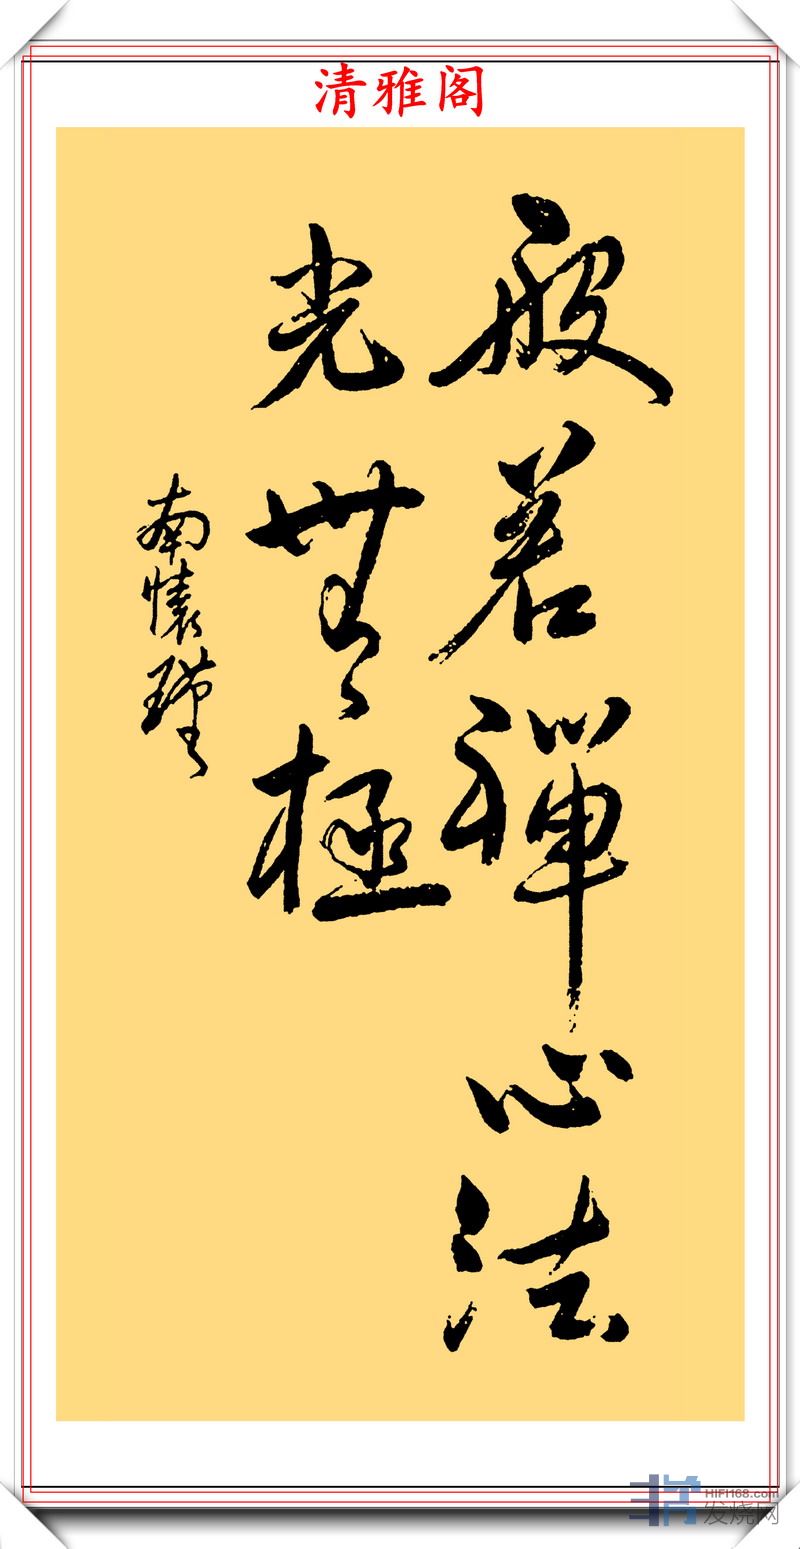 清雅阁
般若禪心法
光無極
南懷瑾
HIFI168.com
发烧网